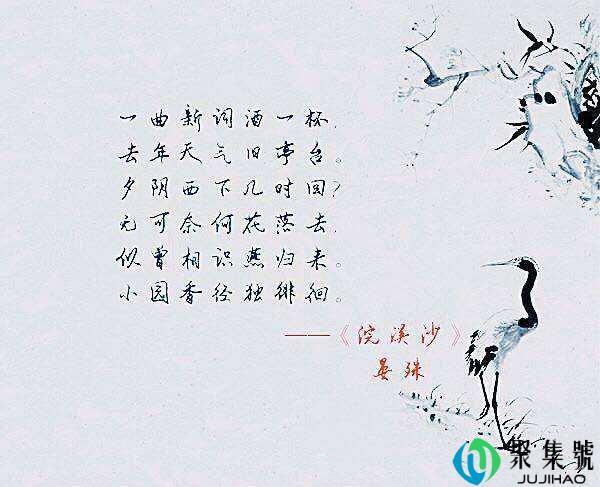 一曲新词酒一杯,
去年天气旧亭台。
夕阳西下几时回?
无可奈何花落去,
似曾相识燕归来。
小园香径独徘徊。
——《浣溪沙》
晏殊
聚集號
JUJIHAO